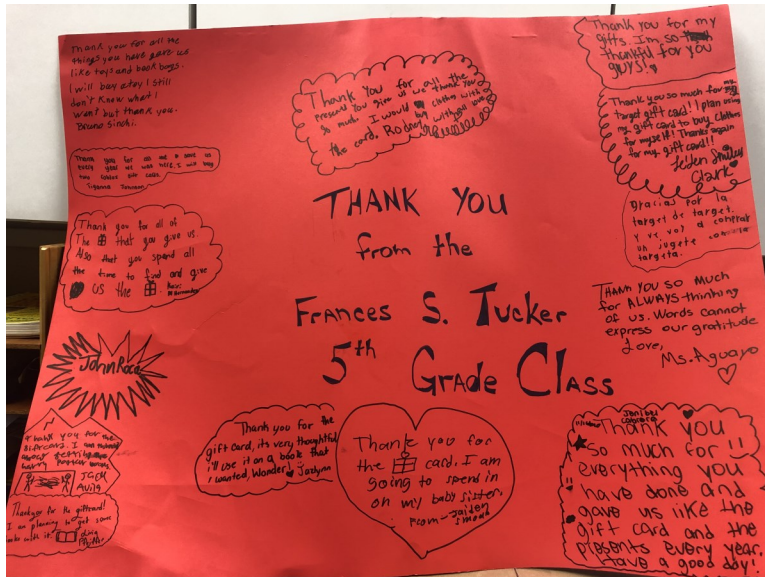 Thank you for all the
things you have gave us
like toys and book bags.
I will buy a toy I still
don't know what I
want but thank you.
Thank you for all the
presents you give us we thank you
so much. I would buy clothes with
the card. Rodney without love
Thank you for my
gifts. I'm so
thankful for you
guys!
Thank you so much for my
target gift card!! I plan using
my gift card to buy clothes
for myself! Thanks again
for my gift card!!
Jeiden Smiley
Clark
gracias por la
target de target.
y ve voy a comprar
un jugete
targeta.
Thank you for all
every year
Johnson
Thank you for all of
The that you give us.
Also that you spend all
the time to find and give
us the
THANK YOU
from the
FRANCES S. TUCKER
5th GRADE CLASS
THANK YOU SO MUCH
for ALWAYS thinking
of us. Words cannot
express our gratitude
Love,
Ms. Aguayo
John Roce
Thank you for the
giftcard. I am
about getting
harry potter
JACK
Avila
Thank you for the giftcard!
I am planning to get some
with it.
Thank you for the
gift card, its very thoughtful
i'll use it on a book that
i wanted, Wonder Jozlynn
Thank you for
the card. I am
going to spend in
on my baby sister.
From-Jaiden
Smooth
Thank you
so much for
everything you
have done and
gave us like the
gift card and the
presents every year.
Have a good day!